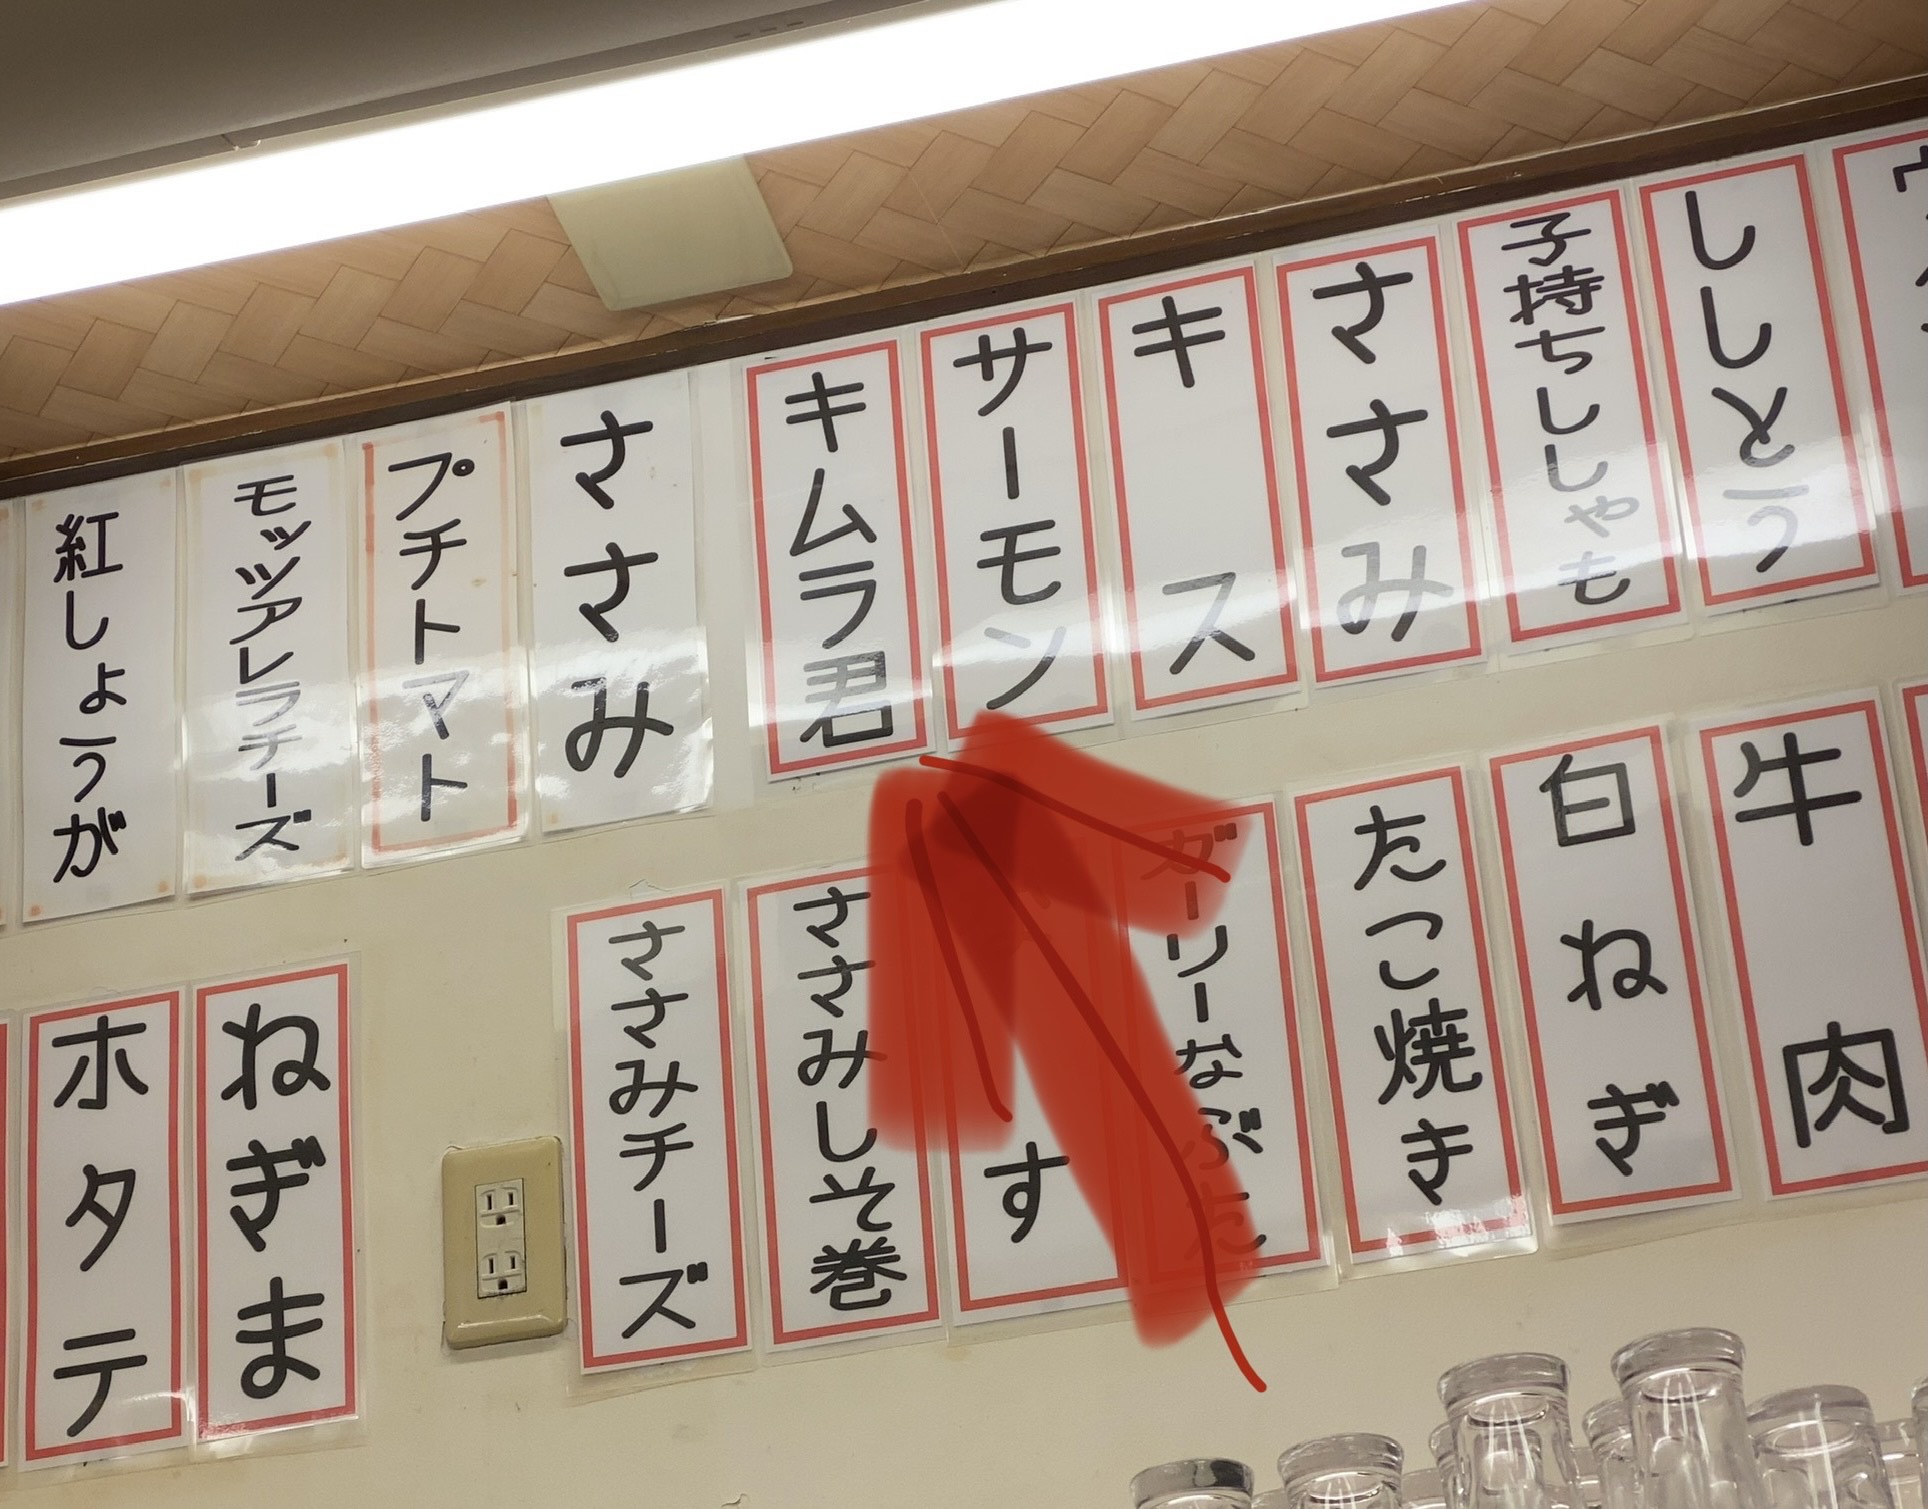 ししとう
子持ちししゃも
ささみ
キス
サーモン
キムラ君
ささみ
プチトマト
モッツアレラチーズ
紅しょうが
牛肉
白ねぎ
たこ焼き
ガーリーなぶた
す
ささみしそ巻
ささみチーズ
ねぎま
ホタテ